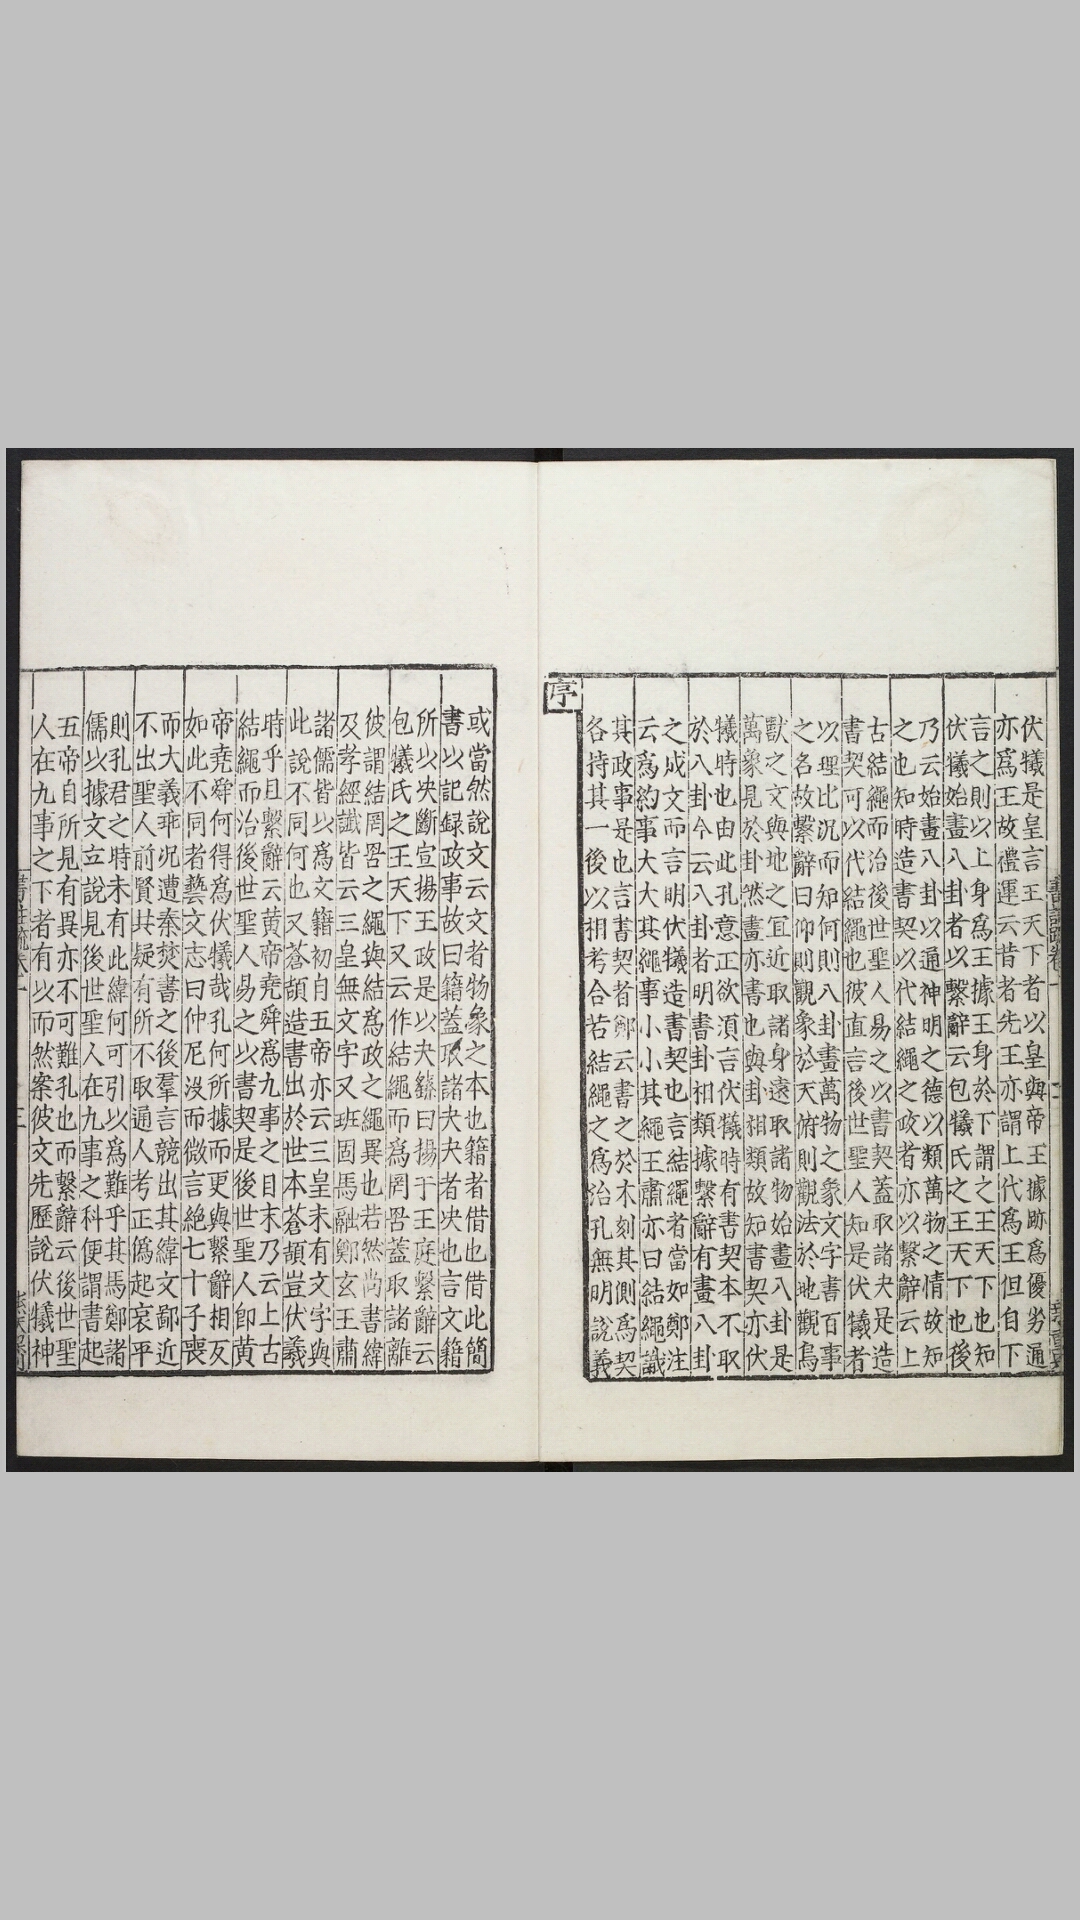 伏犧是皇言王天下者以皇與帝王據跡爲優劣通
亦爲王故禮運云昔者先王亦謂上代爲王但自下
言之則以上身爲王據王身於下謂之王天下也知
伏犧始畫八卦者以繫辭云包犧氏之王天下也後
乃云始畫八卦以通神明之德以類萬物之情故知
之也知時造書契以代結繩之政者亦以繫辭云上
古結繩而治後世聖人易之以書契蓋取諸夬是造
書契可以代結繩也彼直言後世聖人知是伏犧者
以理比況而知何則八卦畫萬物之象文字書百事
之名故繫辭曰仰則觀象於天俯則觀法於地觀鳥
獸之文與地之宜近取諸身遠取諸物始畫八卦是
萬象見於卦然畫亦書也與卦相類故知書契亦伏
犧時也由此孔意正欲須言伏犧時有書契本不取
於八卦今云八卦者明書卦相類據繫辭有畫八卦
之成文而言明伏犧造書契也言結繩者當如鄭注
云爲約事大大其繩事小小其繩王肅亦曰結繩識
其政事是也言書契者鄭云書之於木刻其側爲契
各持其一後以相考合若結繩之爲治孔無明說義
序
或當然說文云文者物象之本也籍者借也借此簡
書以記録政事故曰籍蓋取諸夬夬者決也言文籍
所以決斷宣揚王政是以夬繇曰揚于王庭繫辭云
包犧氏之王天下又云作結繩而爲罔罟蓋取諸離
彼謂結罔罟之繩與結爲政之繩異也若然尚書緯
及孝經讖皆云三皇無文字又班固馬融鄭玄王肅
諸儒皆以爲文籍初自五帝亦云三皇未有文字與
此說不同何也又蒼頡造書出於世本蒼頡豈伏羲
時乎且繫辭云黄帝堯舜爲九事之目末乃云上古
結繩而治後世聖人易之以書契是後世聖人即黄
帝堯舜何得爲伏犧哉孔何所據而更與繫辭相反
如此不同者藝文志曰仲尼没而微言絶七十子喪
而大義乖況遭秦焚書之後羣言競出其緯文鄙近
不出聖人前賢共疑有所不取通人考正僞起哀平
則孔君之時未有此緯何可引以爲難乎其馬鄭諸
儒以據文立說見後世聖人在九事之科便謂書起
五帝自所見有異亦不可難孔也而繫辭云後世聖
人在九事之下者有以而然案彼文先歷說伏犧神